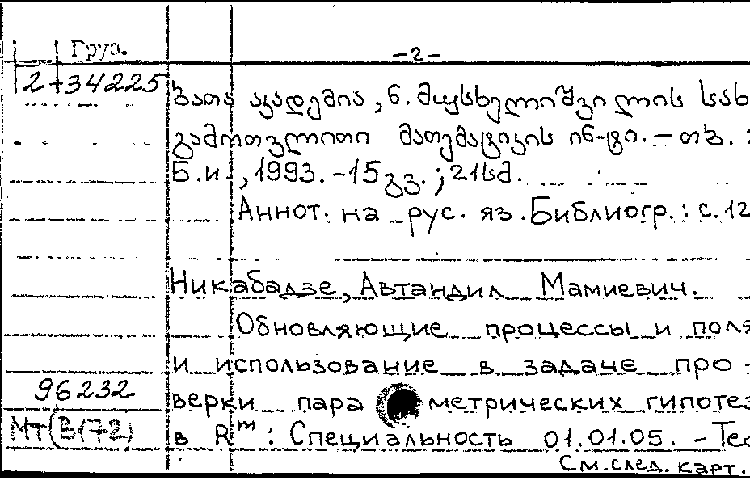 Груз.
-2-
2-34225
ზათა აკადემია, ნ. მუსხელიშვილის სახ
გამოთვლითი მათემატიკის ინ-ტი. - თბ. :
Б.и., 1993. - 15 გვ. ; 21 სმ.
Аннот. на рус. яз. Библиогр.: с. 12
Никабадзе, Автандил Мамиевич.
Обновляющие процессы и поля
и использование в задаче про-
96232
верки пара метрических гипотез
МТ(В(72)
в Rᵐ : Специальность 01.01.05. - Тес
См. след. карт.